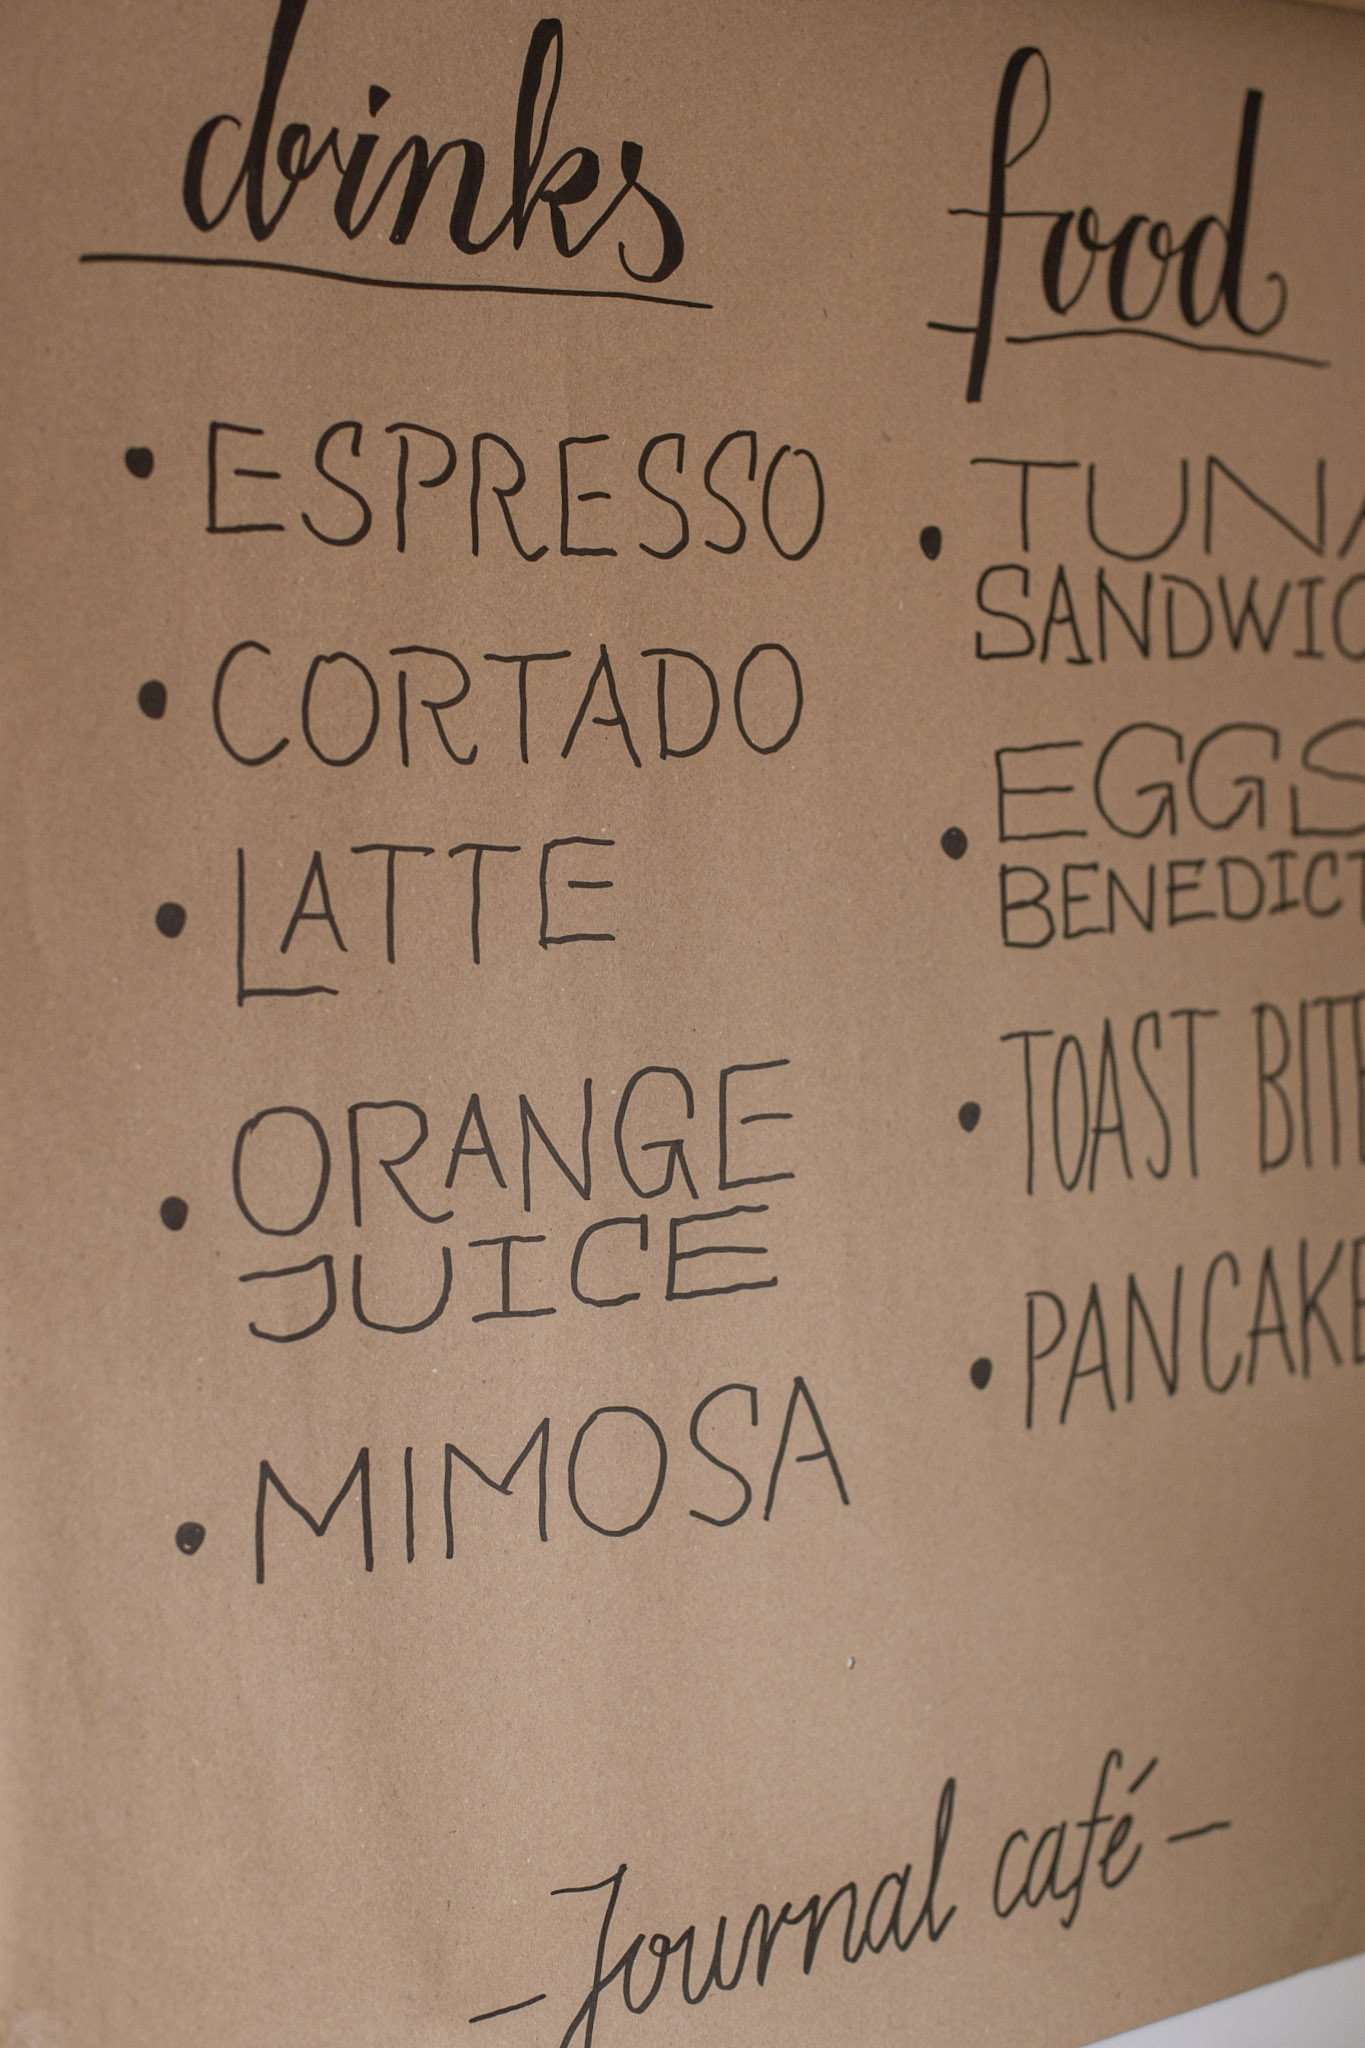 drinks
• ESPRESSO
• CORTADO
• LATTE
• ORANGE
JUICE
• MIMOSA
food
• TUNA
SANDWIC
• EGGS
BENEDICT
• TOAST BITE
• PANCAKE
– Journal café –